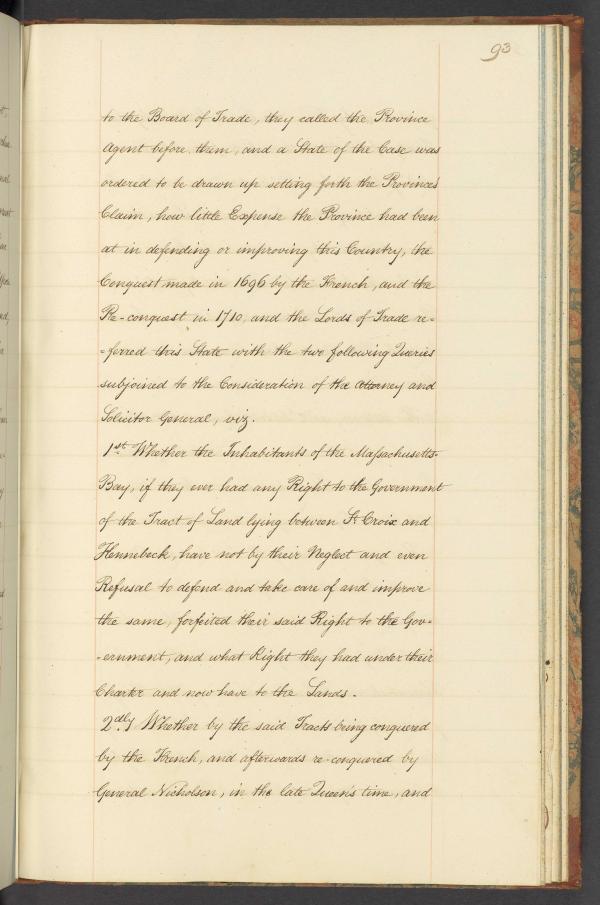 93
to the Board of Trade, they called the Province
Agent before them, and a State of the Case was
ordered to be drawn up setting forth the Province's
Claim, how little Expense the Province had been
at in defending or improving this Country, the
Conquest made in 1696 by the French, and the
Re-conquest in 1710, and the Lords of Trade re-
=ferred this State with the two following Queries
subjoined to the Consideration of the Attorney and
Solicitor General, viz.
1st Whether the Inhabitants of the Massachusetts-
Bay, if they ever had any Right to the Government
of the Tract of Land lying between St Croix and
Kennebeck, have not by their Neglect and even
Refusal to defend and take care of and improve
the same, forfeited their said Right to the Gov-
-ernment, and what Right they had under their
Charter and now have to the Lands.
2dly Whether by the said Tracts being conquered
by the French, and afterwards re-conquered by
General Nicholson, in the late Queen's time, and